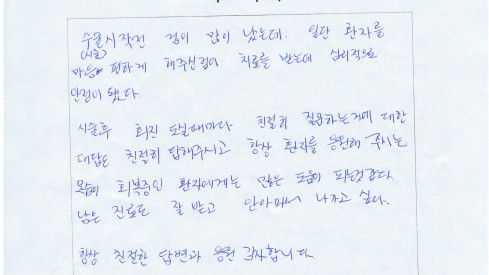 수술시작전 겁이 많이 났는데. 일단 환자를
(시술)
마음 편하게 해주신점이 치료를 받는데 심리적으로
안정이 됐다.
시술후 회진 도실때마다 친절히 질문하는거에 대한
대답도 친절히 답해주시고 항상 환자를 응원해 주시는
모습이 회복중인 환자에게는 많은 도움이 되는것같다.
남은 진료도 잘 받고 안아파서 나가고 싶다.
항상 친절한 답변과 응원 감사합니다